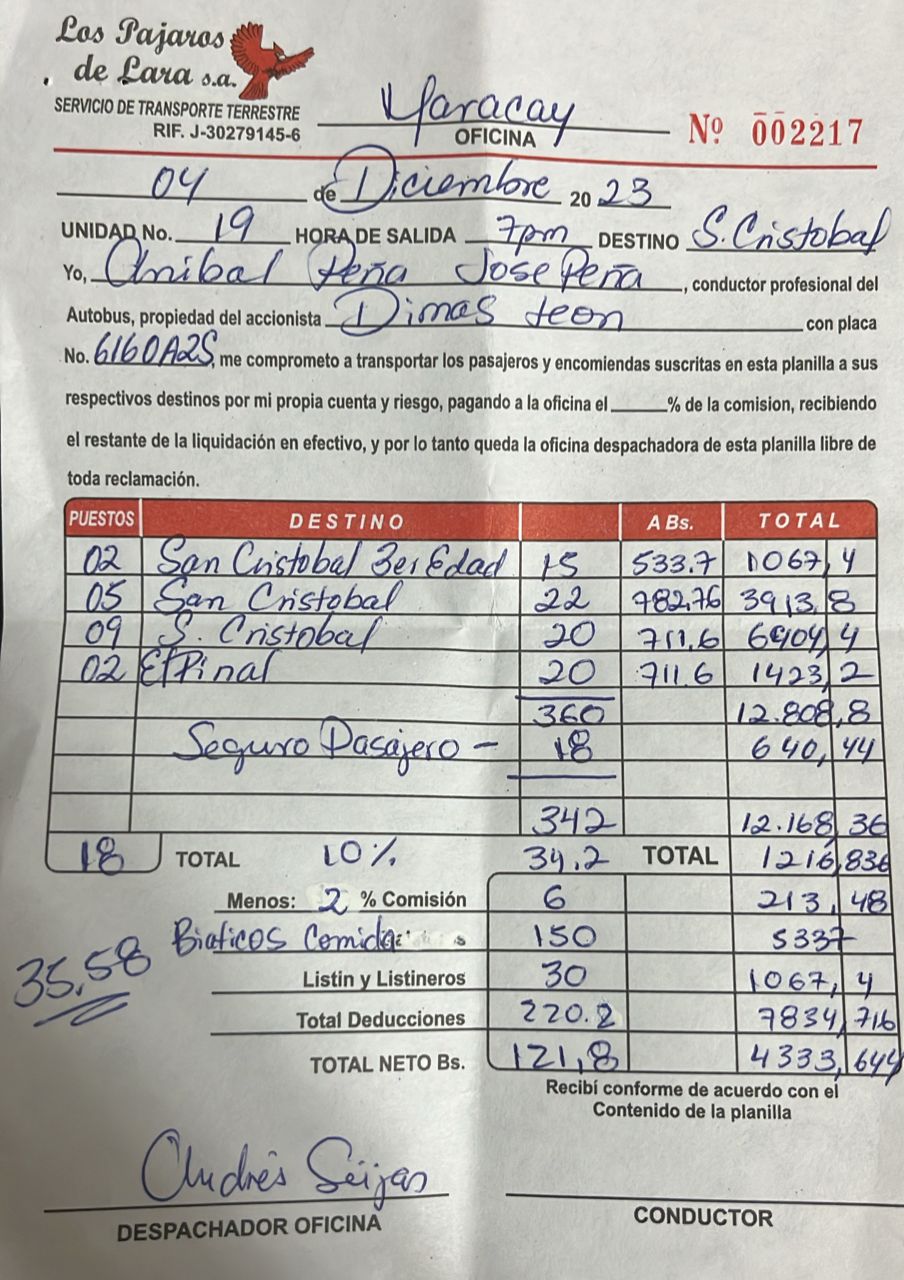 Los Pajaros
de Lara s.a.
SERVICIO DE TRANSPORTE TERRESTRE
RIF. J-30279145-6
Maracay
OFICINA
Nº 002217
04 de Diciembre 20 23
UNIDAD No. 19 HORA DE SALIDA 7pm DESTINO S. Cristobal
Yo, Anibal Peña Jose Peña, conductor profesional del
Autobus, propiedad del accionista Dimas Leon con placa
No. 6160A2S, me comprometo a transportar los pasajeros y encomiendas suscritas en esta planilla a sus
respectivos destinos por mi propia cuenta y riesgo, pagando a la oficina el ______% de la comision, recibiendo
el restante de la liquidación en efectivo, y por lo tanto queda la oficina despachadora de esta planilla libre de
toda reclamación.
PUESTOS DESTINO A Bs. TOTAL
02 San Cristobal 3er Edad 15 533.7 1067,4
05 San Cristobal 22 782,76 3913,8
09 S. Cristobal 20 711,6 6404,4
02 El Pinal 20 711.6 1423,2
360 12.808,8
Seguro Pasajero - 18 640,44
342 12.168,36
18 TOTAL 10% 34,2 TOTAL 1216,836
Menos: 2 % Comisión 6 213,48
Biaticos Comida 150 5337
35,58
Listin y Listineros 30 1067,4
Total Deducciones 220.2 7834,716
TOTAL NETO Bs. 121,8 4333,644
Recibí conforme de acuerdo con el
Contenido de la planilla
Andrés Seijas
DESPACHADOR OFICINA
CONDUCTOR